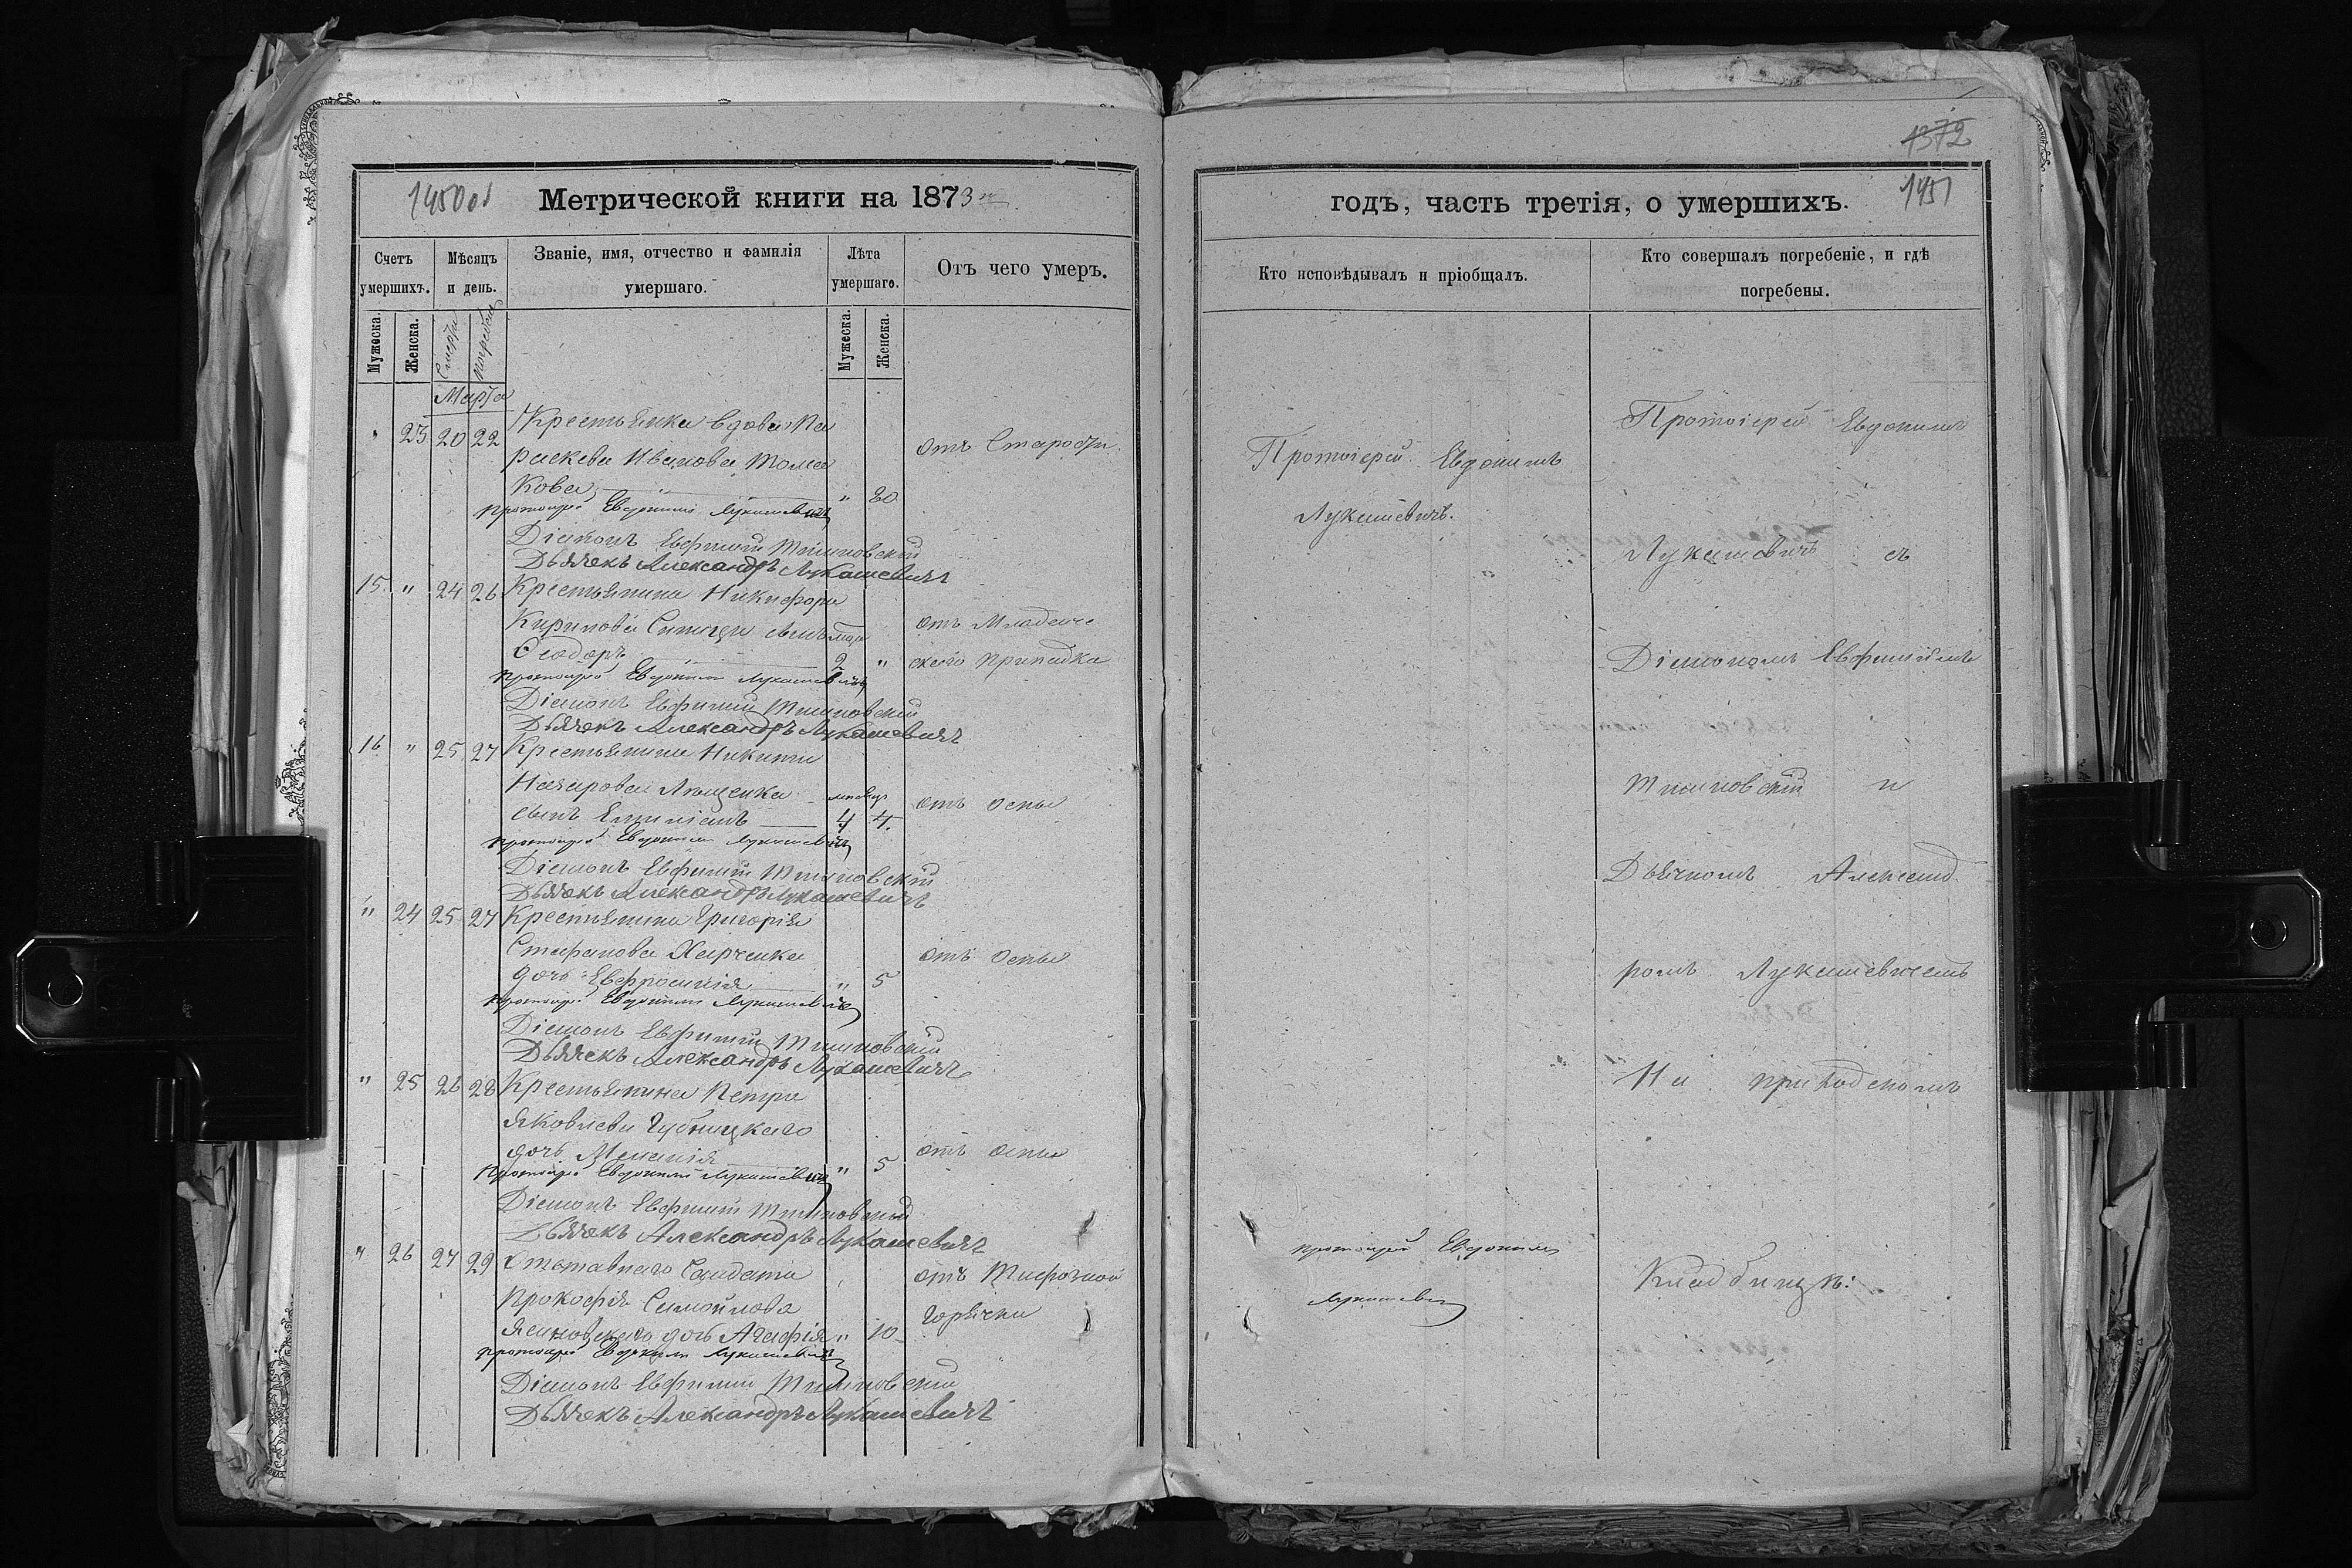 1450 об
Метрической книги на 1873 й
Счетъ умершихъ.
Мѣсяцъ и день.
Званіе, имя, отчество и фамилія умершаго.
Лѣта умершаго.
Отъ чего умеръ.
Мужеска.
Женска.
Смерти
погребен
Мужеска.
Женска.
Марта
" 23 20 22 Крестьянка вдова Па
раскева Иванова Толма
кова " 80
отъ Старости
Протоіерей Евдокимъ Лукашевичъ
Діаконъ Евфимій Тишовскій
Дьячекъ Александръ Лукашевичъ
15 " 24 26 Крестьянина Никифора
Кирилова сынъ
Ѳеодоръ 2 "
отъ Младенче
скаго припадка
Протоіерей Евдокимъ Лукашевичъ
Діаконъ Евфимій Тишовскій
Дьячекъ Александръ Лукашевичъ
16 " 25 27 Крестьянина Никиты
Назарова Лященка месяц
сынъ Емиліанъ 4
отъ оспы
Протоіерей Евдокимъ Лукашевичъ
Діаконъ Евфимій Тишовскій
Дьячекъ Александръ Лукашевичъ
" 24 25 27 Крестьянина Григорія
Стефанова Харченка
дочь Евфросинія " 5
отъ оспы
Протоіерей Евдокимъ Лукашевичъ
Діаконъ Евфимій Тишовскій
Дьячекъ Александръ Лукашевичъ
" 25 26 28 Крестьянина Петра
Яковлева Губницкаго
дочь Меланія " 5
отъ оспы
Протоіерей Евдокимъ Лукашевичъ
Діаконъ Евфимій Тишовскій
Дьячекъ Александръ Лукашевичъ
" 26 27 29 Отставнаго Солдата
Прокофія Самойлова
Ясиновскаго дочь Агафія " 10
отъ Тифозной
горячки
Протоіерей Евдокимъ Лукашевичъ
Діаконъ Евфимій Тишовскій
Дьячекъ Александръ Лукашевичъ
1372
годъ, часть третія, о умершихъ.
1451
Кто исповѣдывалъ и пріобщалъ.
Кто совершалъ погребеніе, и гдѣ
погребены.
Протоіерей Евдокимъ
Лукашевичъ.
протоіерей Евдокимъ
Лукашевичъ
Протоіерей Евдокимъ
Лукашевичъ съ
Діакономъ Евфиміемъ
Тишовскій и
Дьячкомъ Александ
ромъ Лукашевичемъ
На приходскомъ
Кладбищѣ: